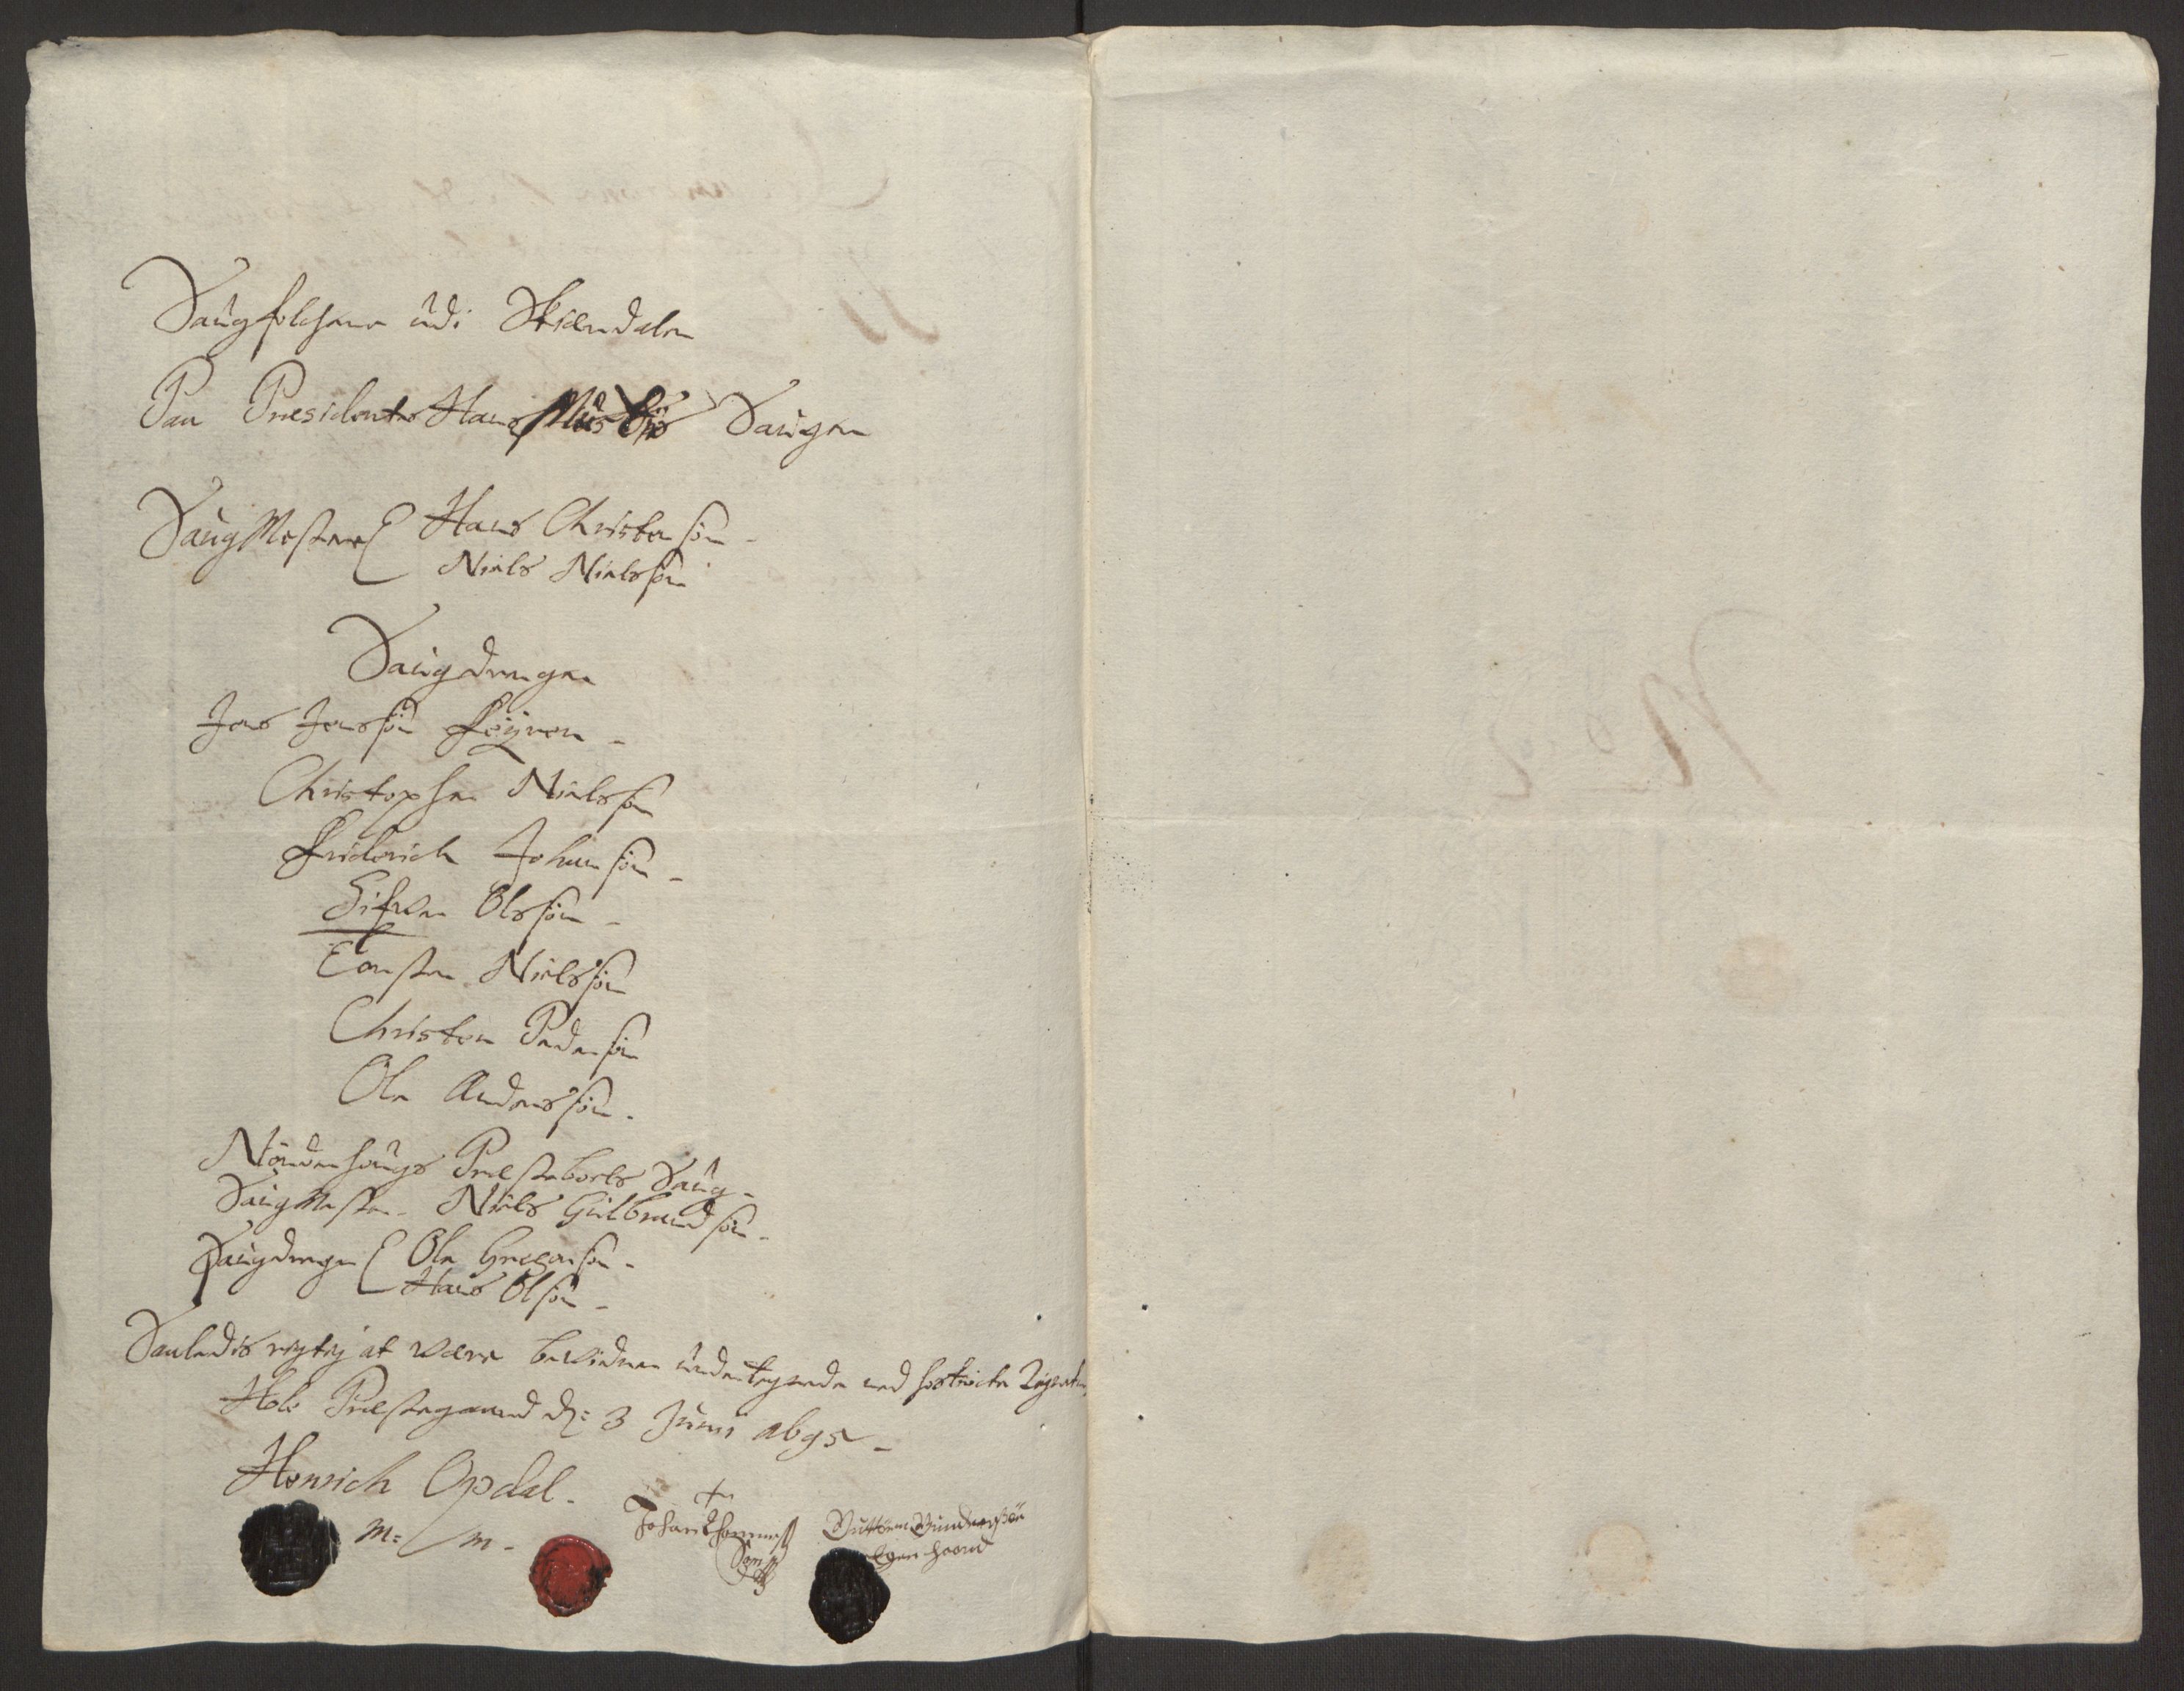 Saugfolchene udi Skiendalen
Paa Presidentes Hans Saugen
Saug Mestere Hans Christensøn
Niels Nielssøn
Saugdrengen
Jens Jenssøn Røgnen
Christopher Nielssøn
Friderich Johansøn
Sifver Olssøn
Carsten Nielssøn
Christen Pedersøn
Ole Anderssøn
Nordenhougs Præstebøels Saug
Saug Mester Niels Gulbrandsøn
Saugdrenge Ole Gregersøn
Hans Olsøn
Saaledis rigtig at være bevidner undertegnede med hostrickte Zigneter
Hole Præstegaard d: 3 Juni 1695
Henrich Opdal
m: m
Johan
Guttorm Gundersøn
Egen haand